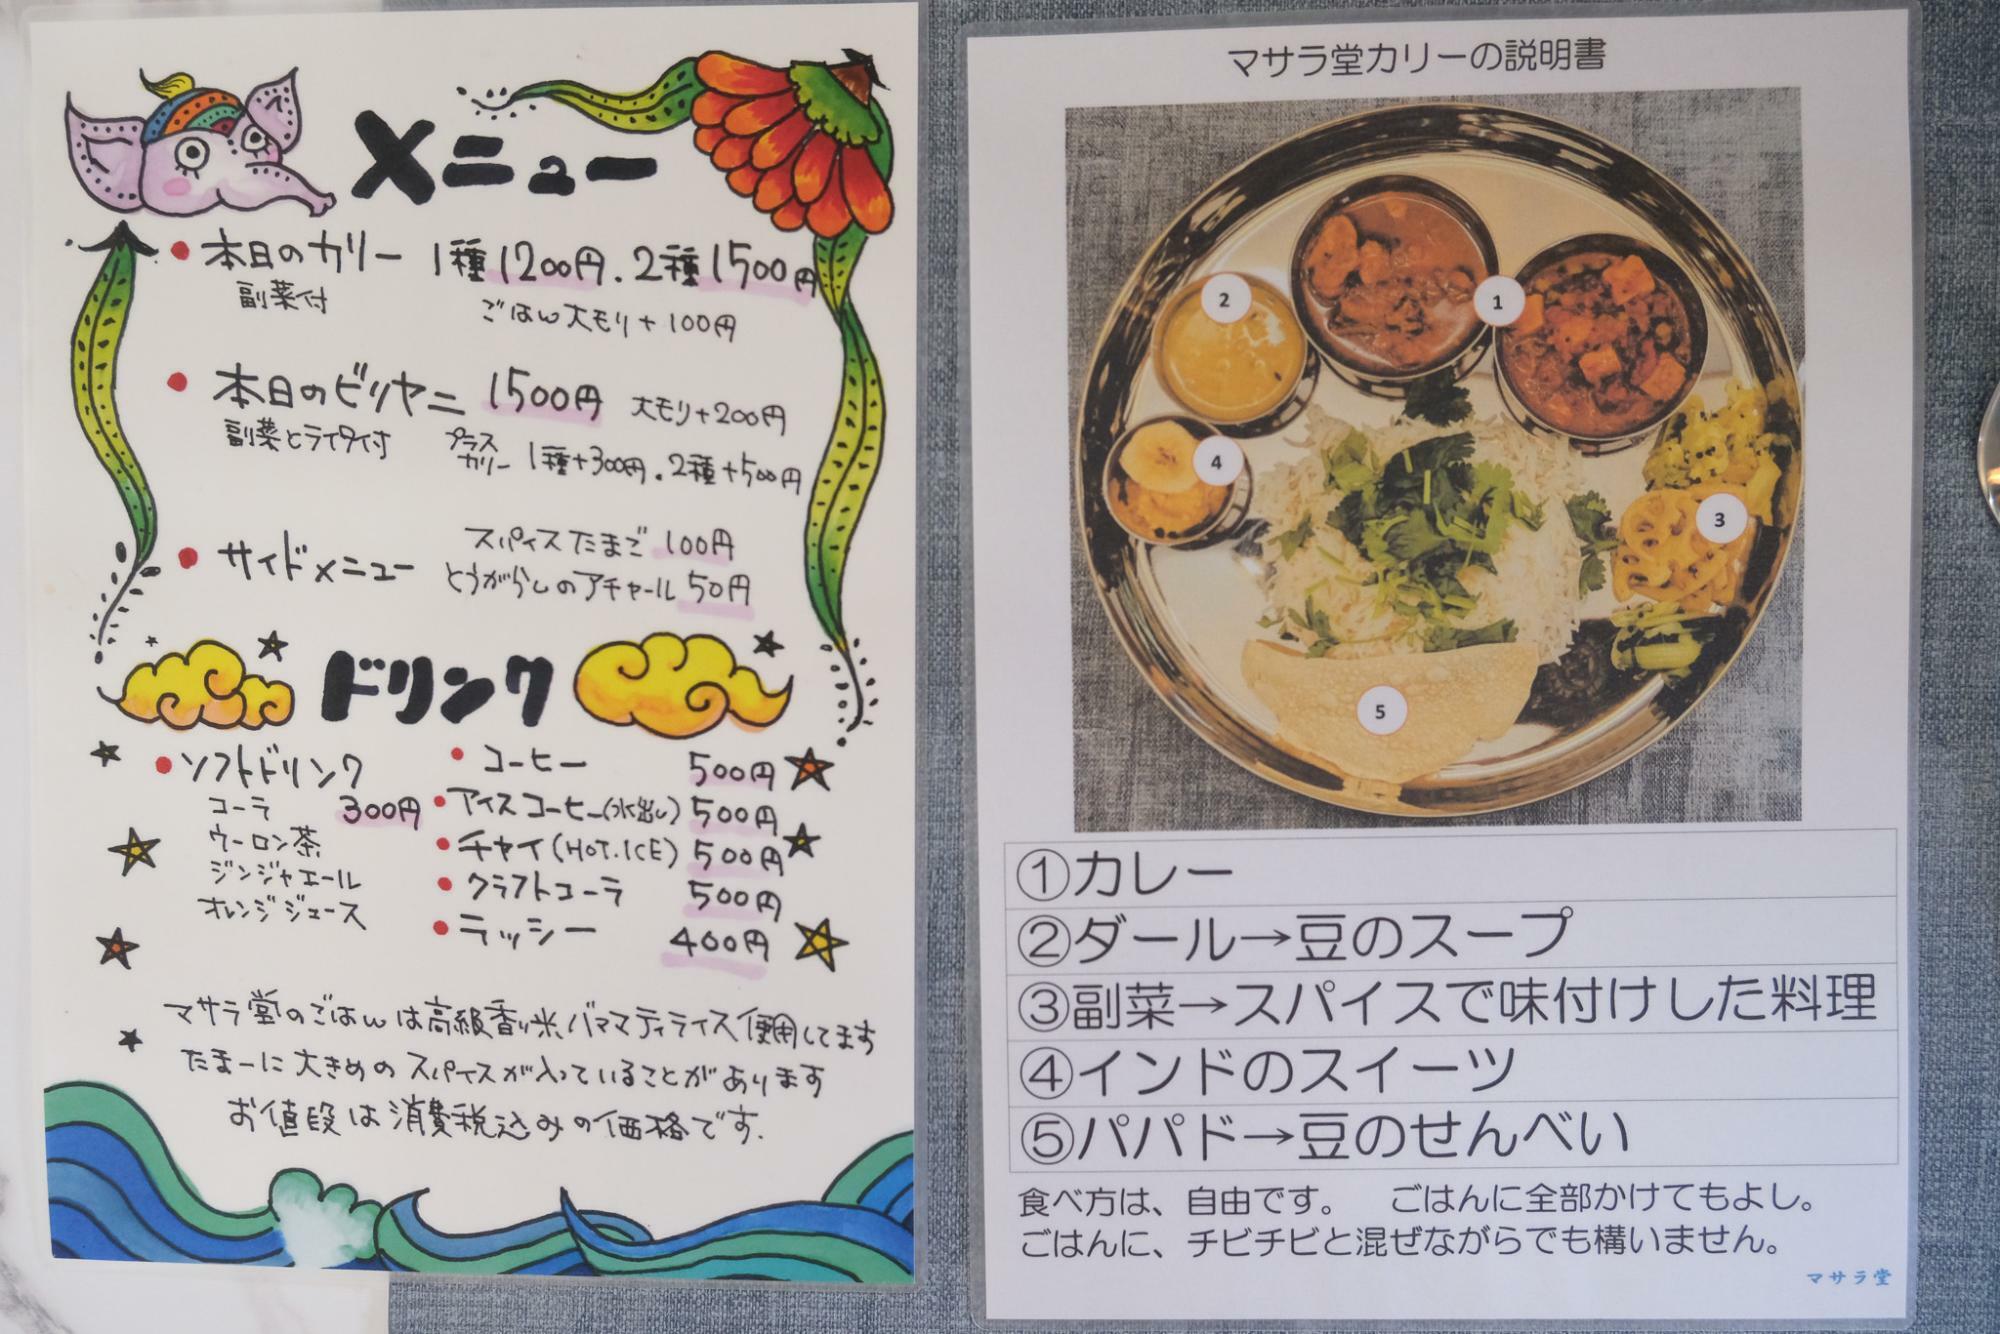 メニュー
本日のカリー 1種1200円.2種1500円
副菜付 ごはん大モリ+100円
本日のビリヤニ 1500円 大モリ+200円
副菜とライタ付 プラスカリー 1種+300円.2種+500円
サイドメニュー スパイスたまご 100円
とうがらしのアチャール 50円
ドリンク
ソフトドリンク
コーラ 300円
ウーロン茶
ジンジャエール
オレンジジュース
コーヒー 500円
アイスコーヒー(水出し) 500円
チャイ(HOT.ICE) 500円
クラフトコーラ 500円
ラッシー 400円
マサラ堂のごはんは高級香り米バママティライス使用してます
たまーに大きめのスパイスが入っていることがあります
お値段は消費税込みの価格です.
マサラ堂カリーの説明書
2
1
4
3
5
①カレー
②ダール→豆のスープ
③副菜→スパイスで味付けした料理
④インドのスイーツ
⑤パパド→豆のせんべい
食べ方は、自由です。 ごはんに全部かけてもよし。
ごはんに、チビチビと混ぜながらでも構いません。
マサラ堂